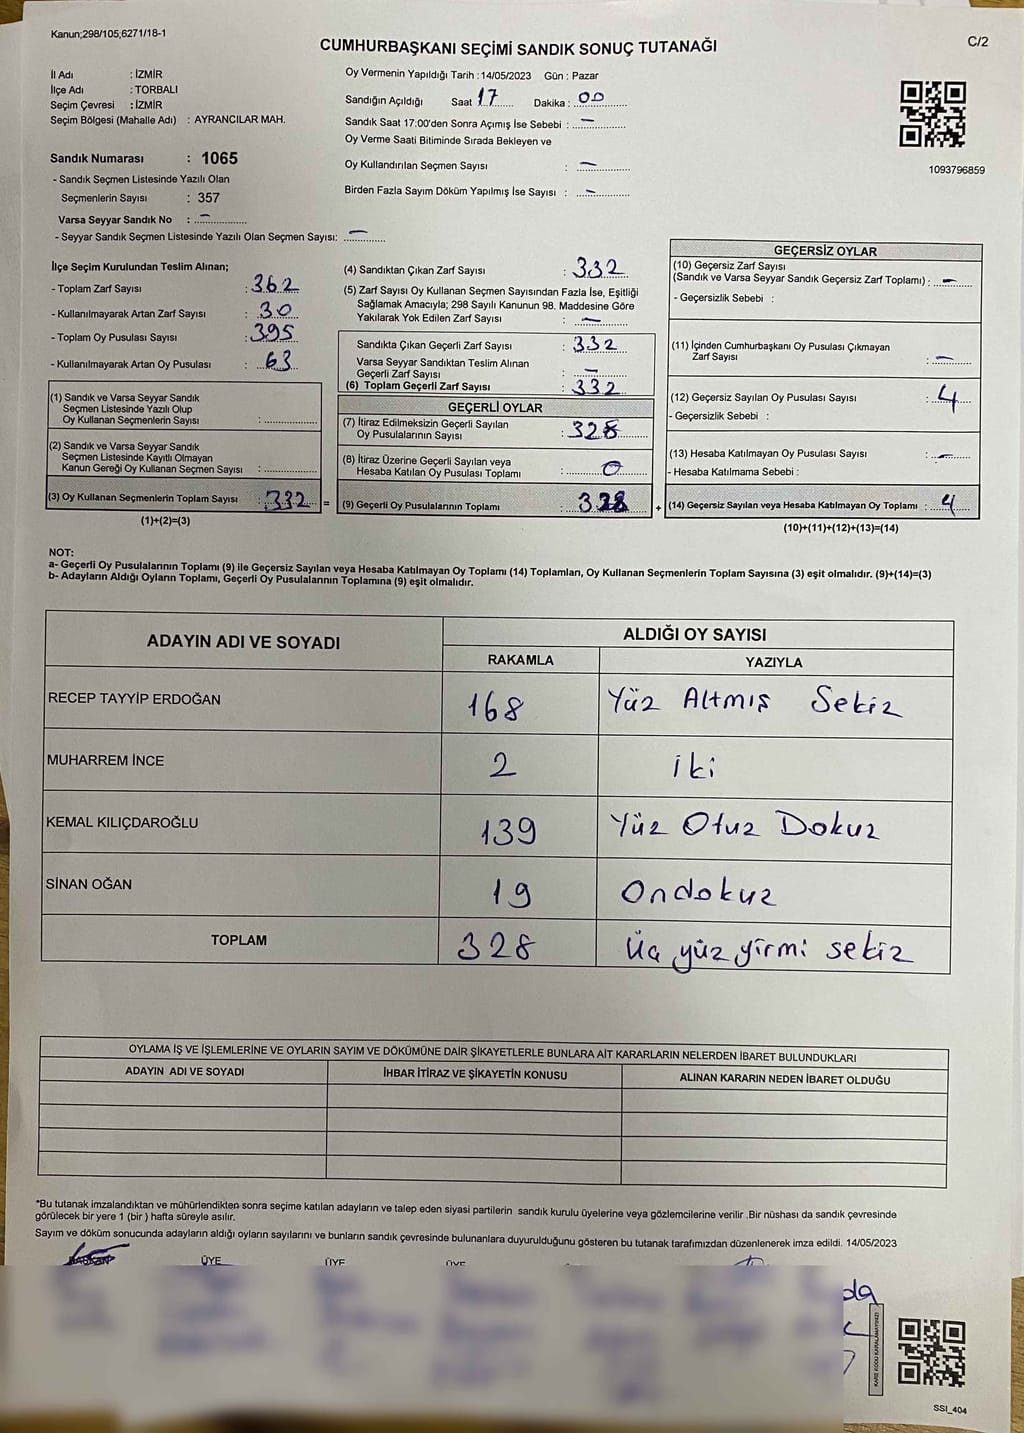 Kanun;298/105;6271/18-1
C/2
CUMHURBAŞKANI SEÇİMİ SANDIK SONUÇ TUTANAĞI
İl Adı : İZMİR
İlçe Adı : TORBALI
Seçim Çevresi : İZMİR
Seçim Bölgesi (Mahalle Adı) : AYRANCILAR MAH.
Sandık Numarası : 1065
- Sandık Seçmen Listesinde Yazılı Olan
Seçmenlerin Sayısı : 357
Varsa Seyyar Sandık No : –
- Seyyar Sandık Seçmen Listesinde Yazılı Olan Seçmen Sayısı: –
Oy Vermenin Yapıldığı Tarih : 14/05/2023 Gün : Pazar
Sandığın Açıldığı Saat 17 Dakika : 00
Sandık Saat 17:00'den Sonra Açımış İse Sebebi : –
Oy Verme Saati Bitiminde Sırada Bekleyen ve
Oy Kullandırılan Seçmen Sayısı : –
Birden Fazla Sayım Döküm Yapılmış İse Sayısı : –
1093796859
İlçe Seçim Kurulundan Teslim Alınan;
- Toplam Zarf Sayısı : 362
- Kullanılmayarak Artan Zarf Sayısı : 30
- Toplam Oy Pusulası Sayısı : 395
- Kullanılmayarak Artan Oy Pusulası : 63
(1) Sandık ve Varsa Seyyar Sandık
Seçmen Listesinde Yazılı Olup
Oy Kullanan Seçmenlerin Sayısı :
(2) Sandık ve Varsa Seyyar Sandık
Seçmen Listesinde Kayıtlı Olmayan
Kanun Gereği Oy Kullanan Seçmen Sayısı :
(3) Oy Kullanan Seçmenlerin Toplam Sayısı : 332 =
(1)+(2)=(3)
(4) Sandıktan Çıkan Zarf Sayısı : 332
(5) Zarf Sayısı Oy Kullanan Seçmen Sayısından Fazla İse, Eşitliği
Sağlamak Amacıyla; 298 Sayılı Kanunun 98. Maddesine Göre
Yakılarak Yok Edilen Zarf Sayısı : –
Sandıkta Çıkan Geçerli Zarf Sayısı : 332
Varsa Seyyar Sandıktan Teslim Alınan
Geçerli Zarf Sayısı : –
(6) Toplam Geçerli Zarf Sayısı : 332
GEÇERLİ OYLAR
(7) İtiraz Edilmeksizin Geçerli Sayılan
Oy Pusulalarının Sayısı : 328
(8) İtiraz Üzerine Geçerli Sayılan veya
Hesaba Katılan Oy Pusulası Toplamı : 0
(9) Geçerli Oy Pusulalarının Toplamı : 328 +
GEÇERSİZ OYLAR
(10) Geçersiz Zarf Sayısı
(Sandık ve Varsa Seyyar Sandık Geçersiz Zarf Toplamı) : –
- Geçersizlik Sebebi :
(11) İçinden Cumhurbaşkanı Oy Pusulası Çıkmayan
Zarf Sayısı : –
(12) Geçersiz Sayılan Oy Pusulası Sayısı : 4
- Geçersizlik Sebebi :
(13) Hesaba Katılmayan Oy Pusulası Sayısı : –
- Hesaba Katılmama Sebebi :
(14) Geçersiz Sayılan veya Hesaba Katılmayan Oy Toplamı : 4
(10)+(11)+(12)+(13)=(14)
NOT:
a- Geçerli Oy Pusulalarının Toplamı (9) ile Geçersiz Sayılan veya Hesaba Katılmayan Oy Toplamı (14) Toplamları, Oy Kullanan Seçmenlerin Toplam Sayısına (3) eşit olmalıdır. (9)+(14)=(3)
b- Adayların Aldığı Oyların Toplamı, Geçerli Oy Pusulalarının Toplamına (9) eşit olmalıdır.
ADAYIN ADI VE SOYADI ALDIĞI OY SAYISI
RAKAMLA YAZIYLA
RECEP TAYYİP ERDOĞAN 168 Yüz Altmış Sekiz
MUHARREM İNCE 2 iki
KEMAL KILIÇDAROĞLU 139 Yüz Otuz Dokuz
SİNAN OĞAN 19 Ondokuz
TOPLAM 328 Üç yüz yirmi sekiz
OYLAMA İŞ VE İŞLEMLERİNE VE OYLARIN SAYIM VE DÖKÜMÜNE DAİR ŞİKAYETLERLE BUNLARA AİT KARARLARIN NELERDEN İBARET BULUNDUKLARI
ADAYIN ADI VE SOYADI İHBAR İTİRAZ VE ŞİKAYETİN KONUSU ALINAN KARARIN NEDEN İBARET OLDUĞU
*Bu tutanak imzalandıktan ve mühürlendikten sonra seçime katılan adayların ve talep eden siyasi partilerin sandık kurulu üyelerine veya gözlemcilerine verilir .Bir nüshası da sandık çevresinde
görülecek bir yere 1 (bir ) hafta süreyle asılır.
Sayım ve döküm sonucunda adayların aldığı oyların sayılarını ve bunların sandık çevresinde bulunanlara duyurulduğunu gösteren bu tutanak tarafımızdan düzenlenerek imza edildi. 14/05/2023
BAŞKAN ÜYE ÜYE ÜYE
da
KARE KODU KARALAMAYINIZ!
SSI_404